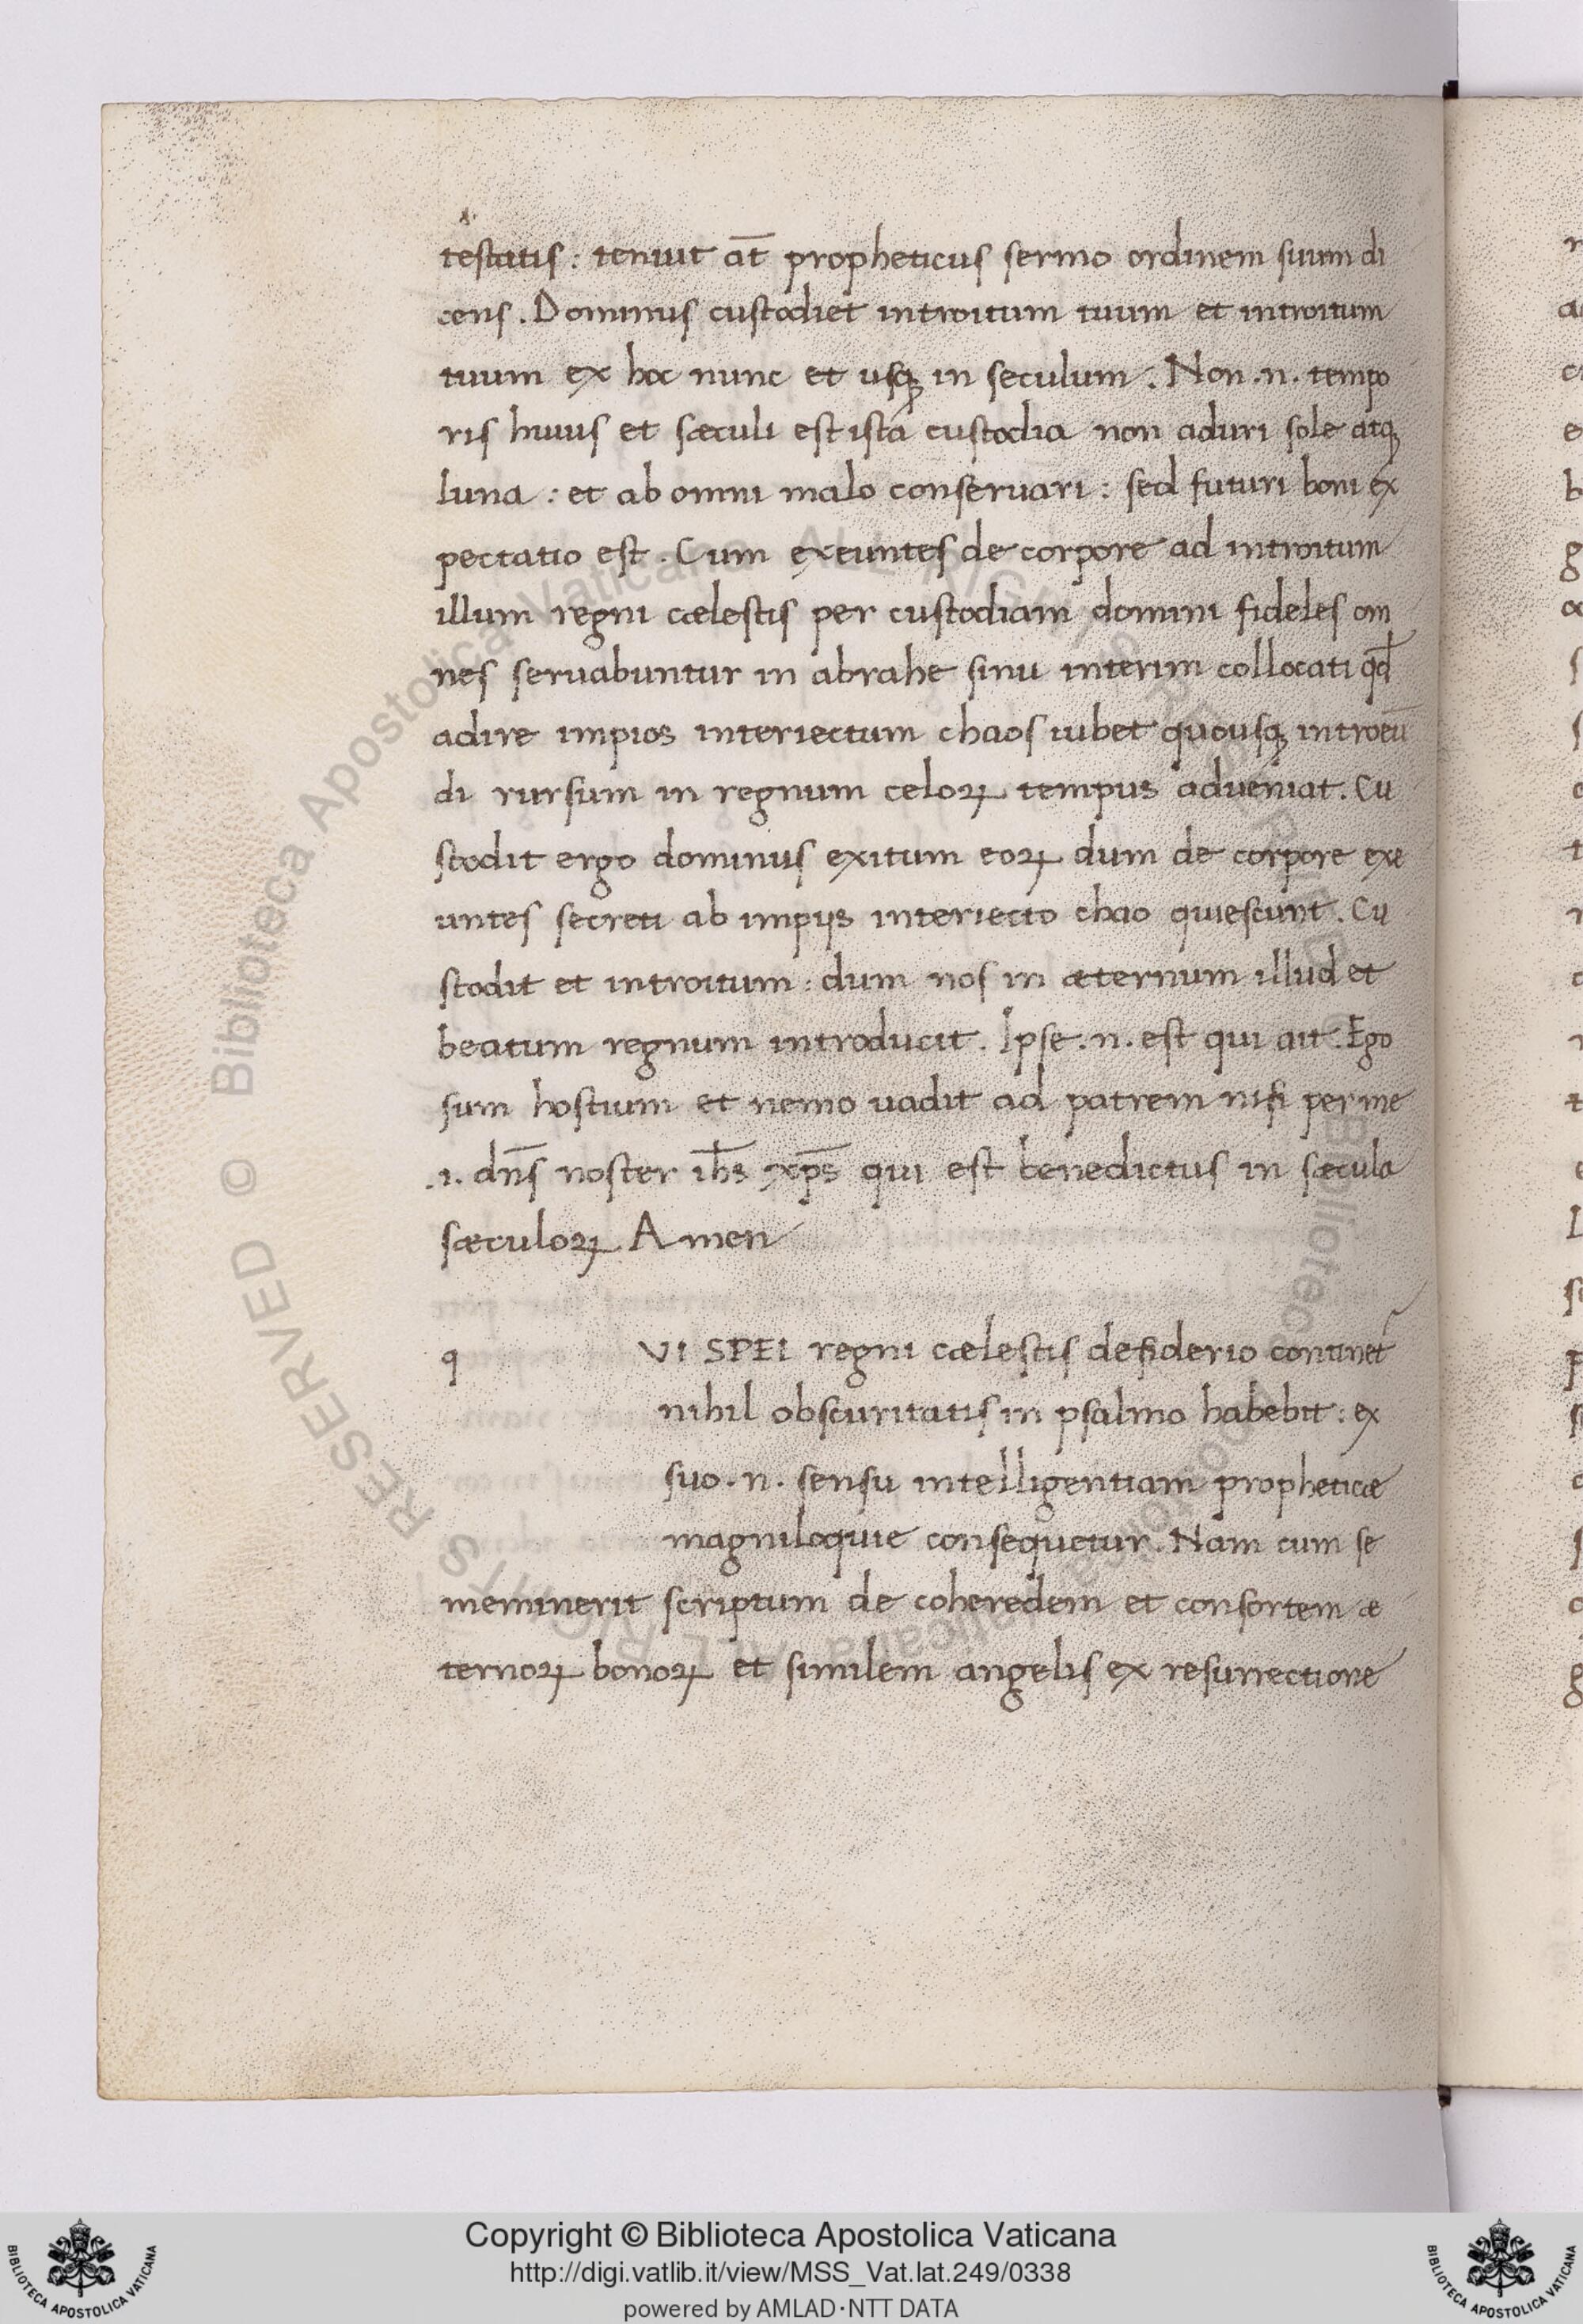 testatis : tenuit at̄ propheticus sermo ordinem suum di
cens . Dominus custodiet introitum tuum et introitum
tuum ex hoc nunc et usqꝫ in seculum . Non .n. tempo
ris huius et sæculi est ista custodia non aduri sole atqꝫ
luna : et ab omni malo conseruari : sed futuri boni ex
pectatio est . Cum exeuntes de corpore ad introitum
illum regni cælestis per custodiam domini fideles om
nes seruabuntur in abrahe sinu interim collocati qd̄
adire impios interiectum chaos iubet quousqꝫ introeū
di rursum in regnum celoꝝ tempus adueniat . Cu
stodit ergo dominus exitum eoꝝ dum de corpore exe
untes secreti ab impijs interiecto chao quiescunt . Cu
stodit et introitum : dum nos in æternum illud et
beatum regnum introducit . Ipse .n. est qui ait . Ego
sum hostium et nemo uadit ad patrem nisi per me
.i. dn̄s noster ih̄s xp̄s qui est benedictus in sæcula
sæculoꝝ Amen
q VI SPEI regni cælestis desiderio continet᷑
nihil obscuritatis in psalmo habebit : ex
suo .n. sensu intelligentiam propheticæ
magniloquie consequetur . Nam cum se
meminerit scriptum de coheredem et consortem æ
ternoꝝ bonoꝝ et similem angelis ex resurrectione
Copyright © Biblioteca Apostolica Vaticana
http://digi.vatlib.it/view/MSS_Vat.lat.249/0338
powered by AMLAD·NTT DATA